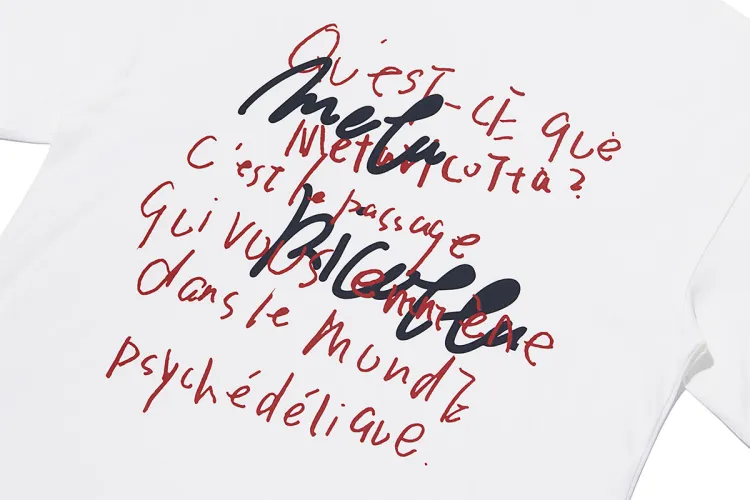 Qu'est-cE quE
mela
?
C'est le passage
qui vous emmène
dans le mondE
psychédélique.